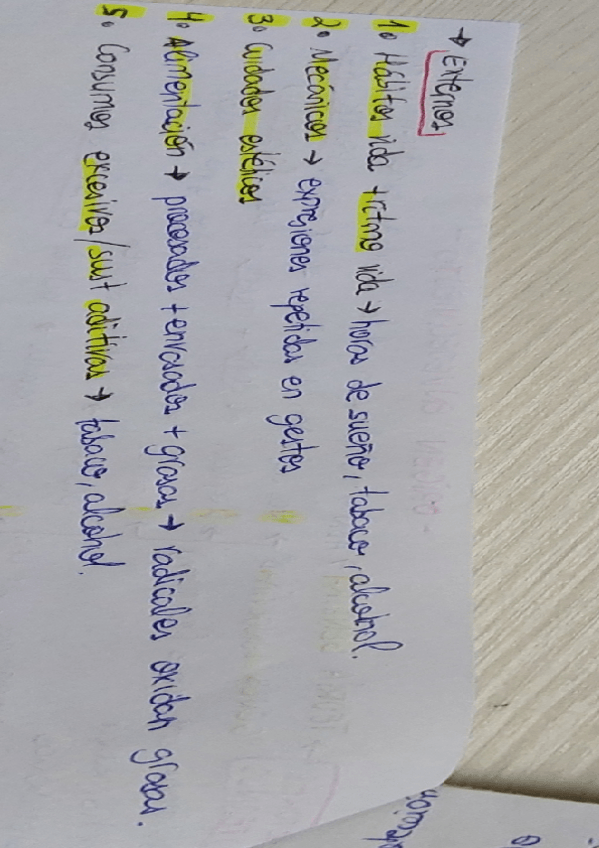 → Externos
1. Hábitos vida + ritmo vida → horas de sueño, tabaco, alcohol.
2. Mecánicos → expresiones repetidas en gestos
3. Cuidados estéticos
4. Alimentación → procesados + envasados + grasas → radicales oxidan grasas.
5. Consumos excesivos/sust aditivas → tabaco, alcohol.